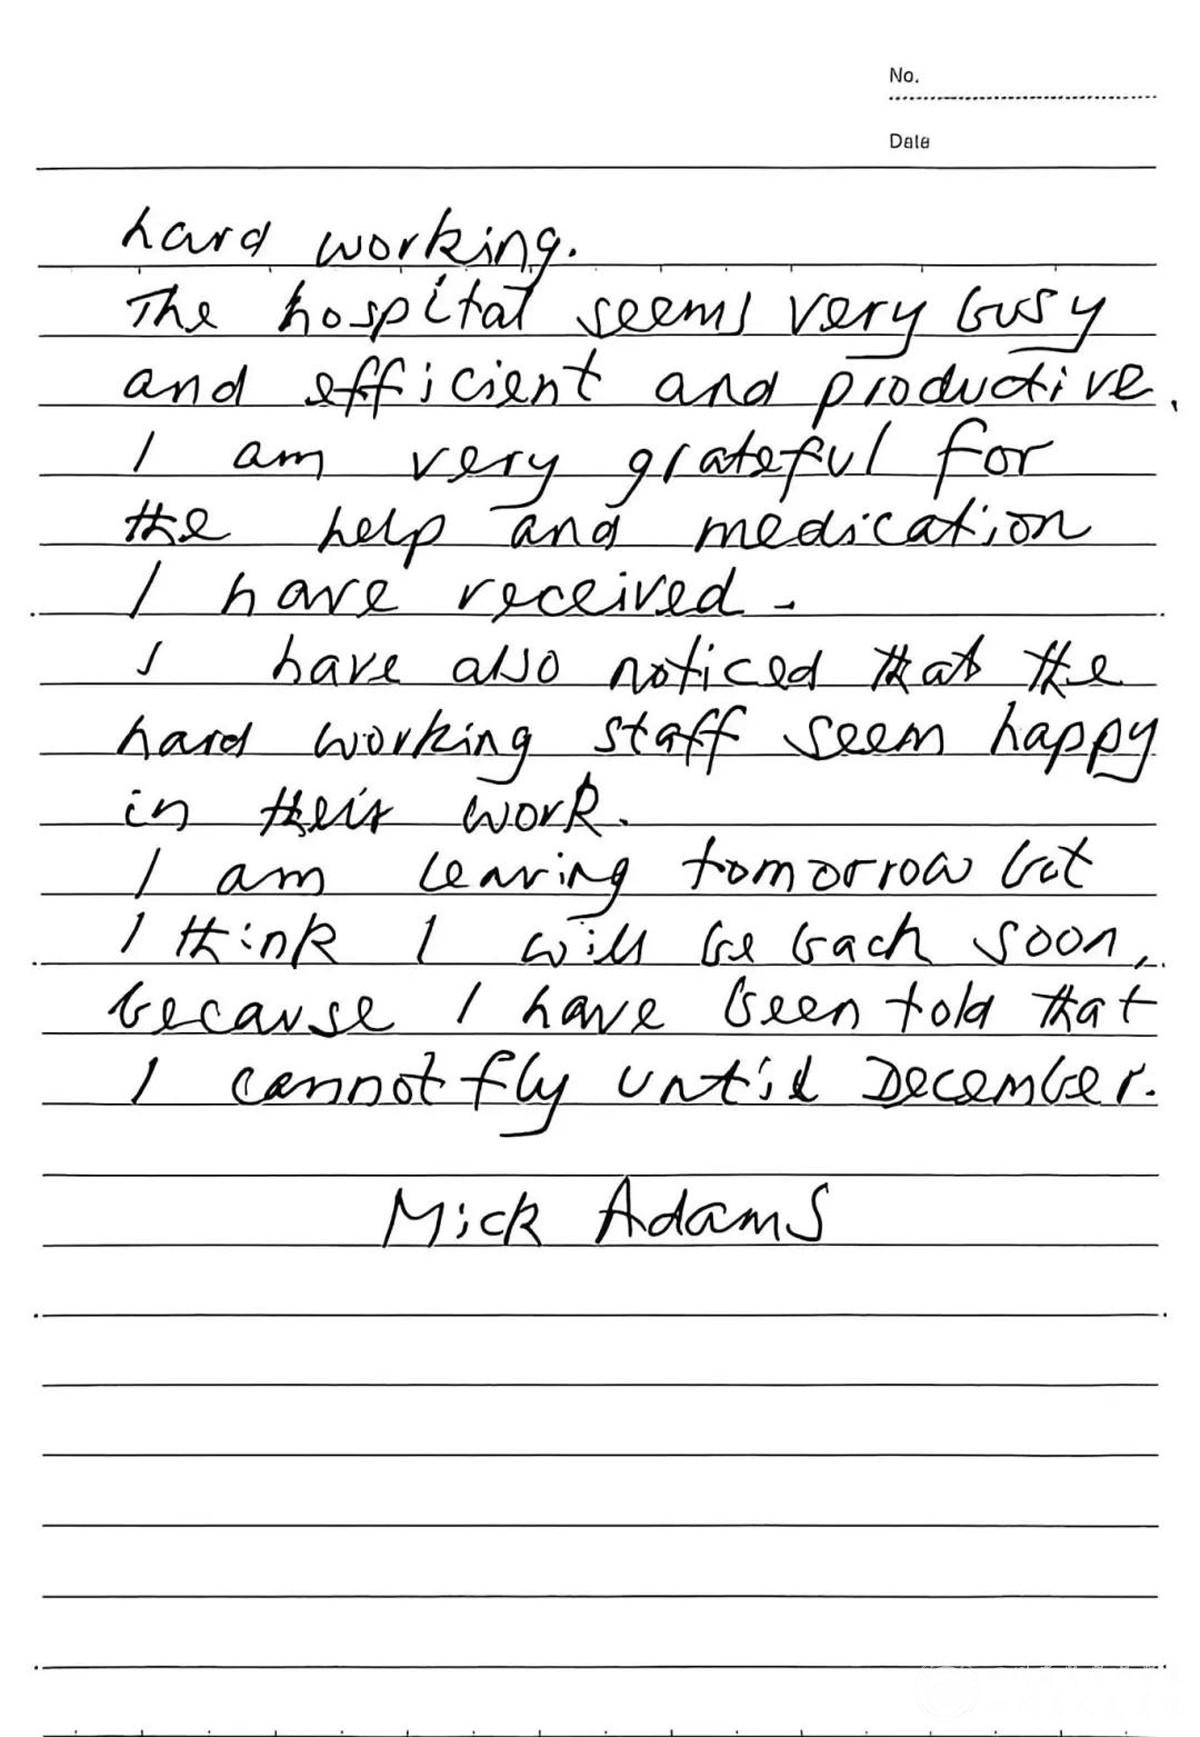 No.
Date
hard working.
The hospital seems very busy
and efficient and productive.
I am very grateful for
the help and medication
I have received.
I have also noticed that the
hard working staff seem happy
in their work.
I am leaving tomorrow but
I think I will be back soon,
because I have been told that
I cannot fly until December.
Mick Adams